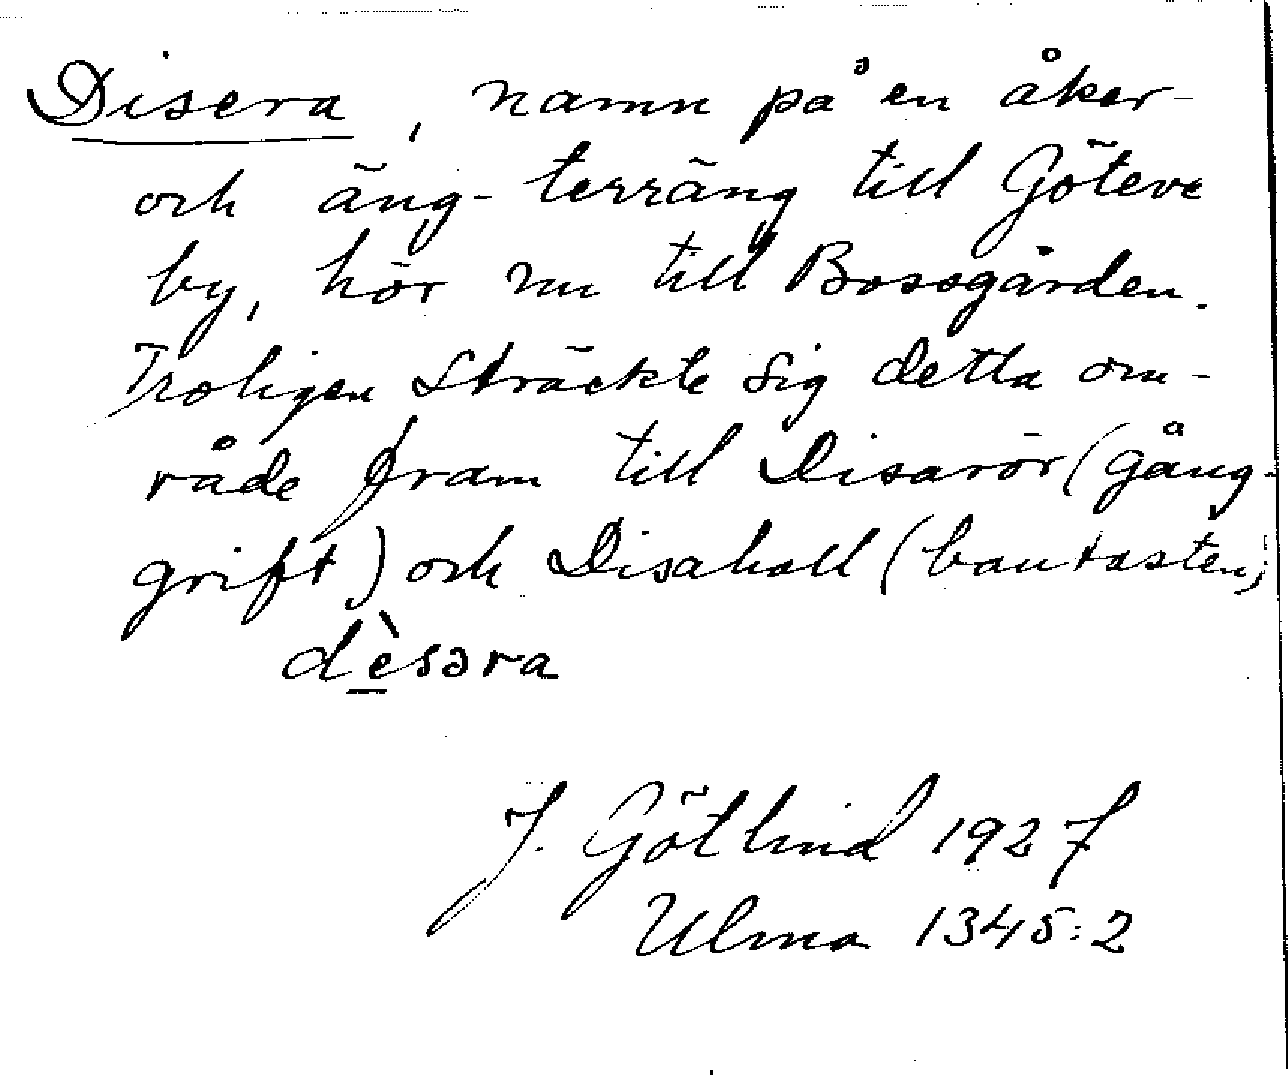 Disera, namn på en åker-
och äng-terräng till Göteve
by, hör nu till Bossgården.
Troligen sträckte sig detta om-
råde fram till Disarör (gång-
grift) och Disahall (bautasten;
dèsəra
J. Götlind 1927
Ulma 1345:2